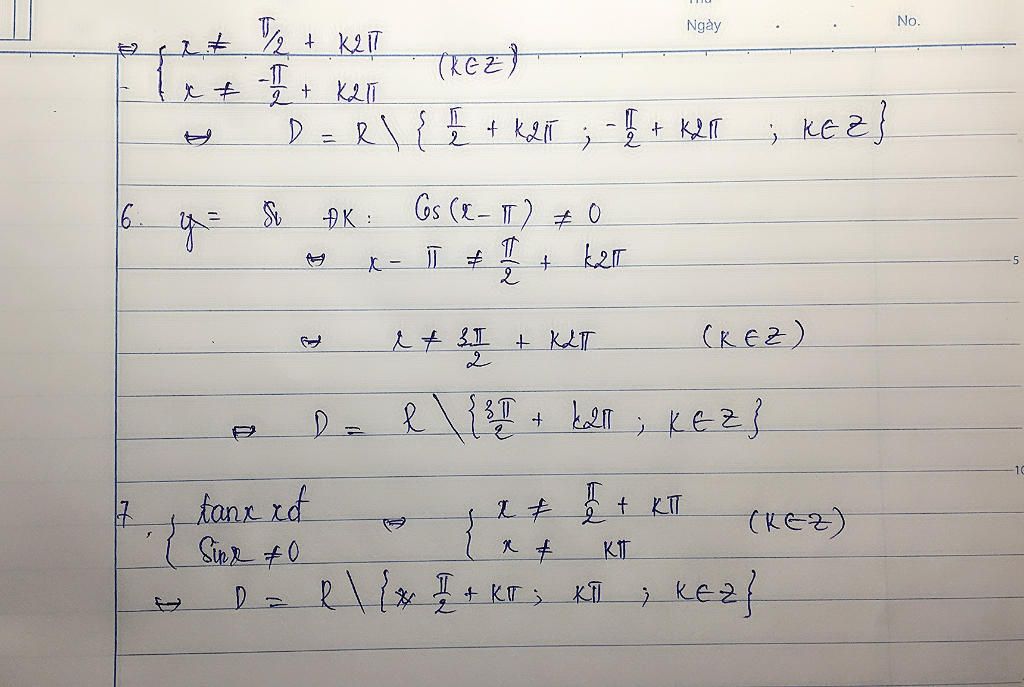 Thứ
Ngày . . No.
⇔ { x ≠ π/2 + k2π
x ≠ -π/2 + k2π (k∈Z)
⇔ D = R \ { π/2 + k2π ; -π/2 + k2π ; k∈Z }
6. y = ĐK: Cos(x - π) ≠ 0
⇔ x - π ≠ π/2 + k2π
5
⇔ x ≠ 3π/2 + k2π (k∈Z)
⇔ D = R \ { 3π/2 + k2π ; k∈Z }
10
7. { tanx xđ ⇔ { x ≠ π/2 + kπ
Sinx ≠ 0 x ≠ kπ (k∈Z)
⇔ D = R \ { π/2 + kπ ; kπ ; k∈Z }